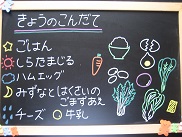 きょうのこんだて
ごはん
しらたまじる
ハムエッグ
みずなとはくさいの
ごまずあえ
チーズ 牛乳